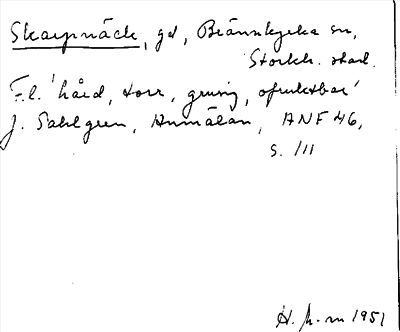 Skarpnäck, gd, Brännkyrka sn,
Stockh. stad.
F.l. 'hård, torr, grusig, ofruktbar'
J. Sahlgren, Humälan, ANF 46,
s. 111
1951